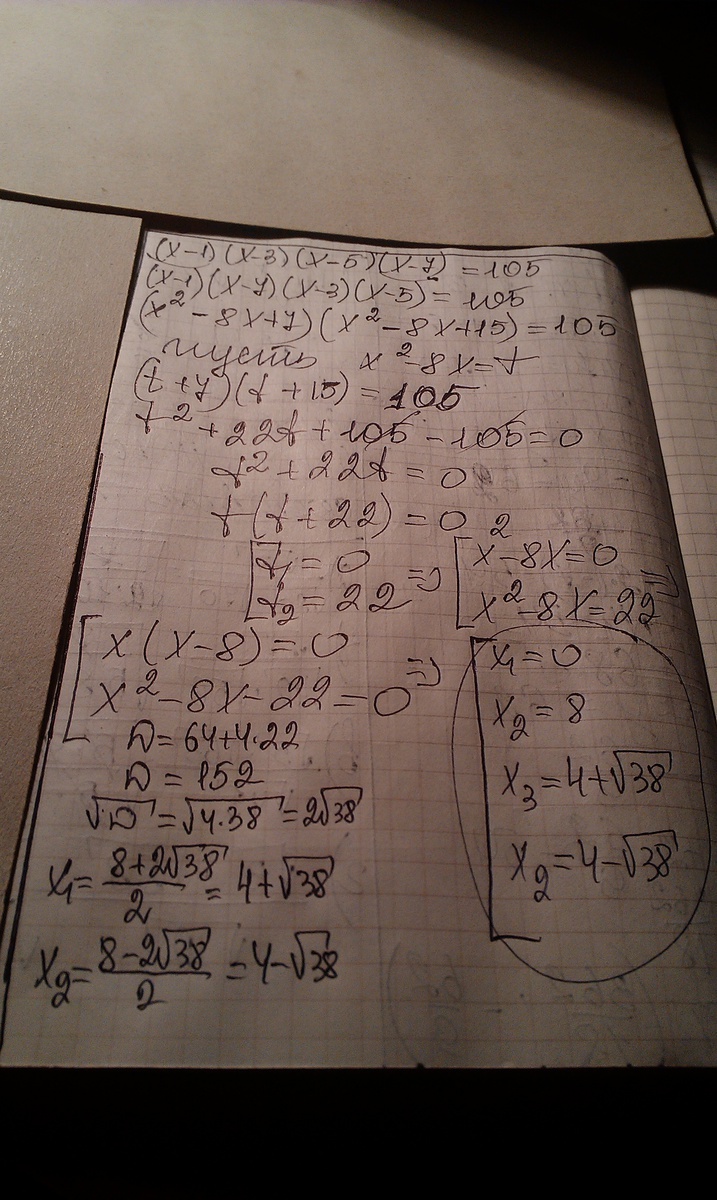 (x-1)(x-3)(x-5)(x-7)=105
(x-1)(x-7)(x-3)(x-5)=105
(x²-8x+7)(x²-8x+15)=105
пусть x²-8x=t
(t+7)(t+15)=105
t²+22t+105-105=0
t²+22t=0
t(t+22)=0
[t₁=0 => [x²-8x=0 =>
[t₂=22 [x²-8x=22
[x(x-8)=0 =>
[x²-8x-22=0
D=64+4·22
D=152
√D=√4·38=2√38
x₁=(8+2√38)/2=4+√38
x₂=(8-2√38)/2=4-√38
[x₁=0
x₂=8
x₃=4+√38
x₂=4-√38